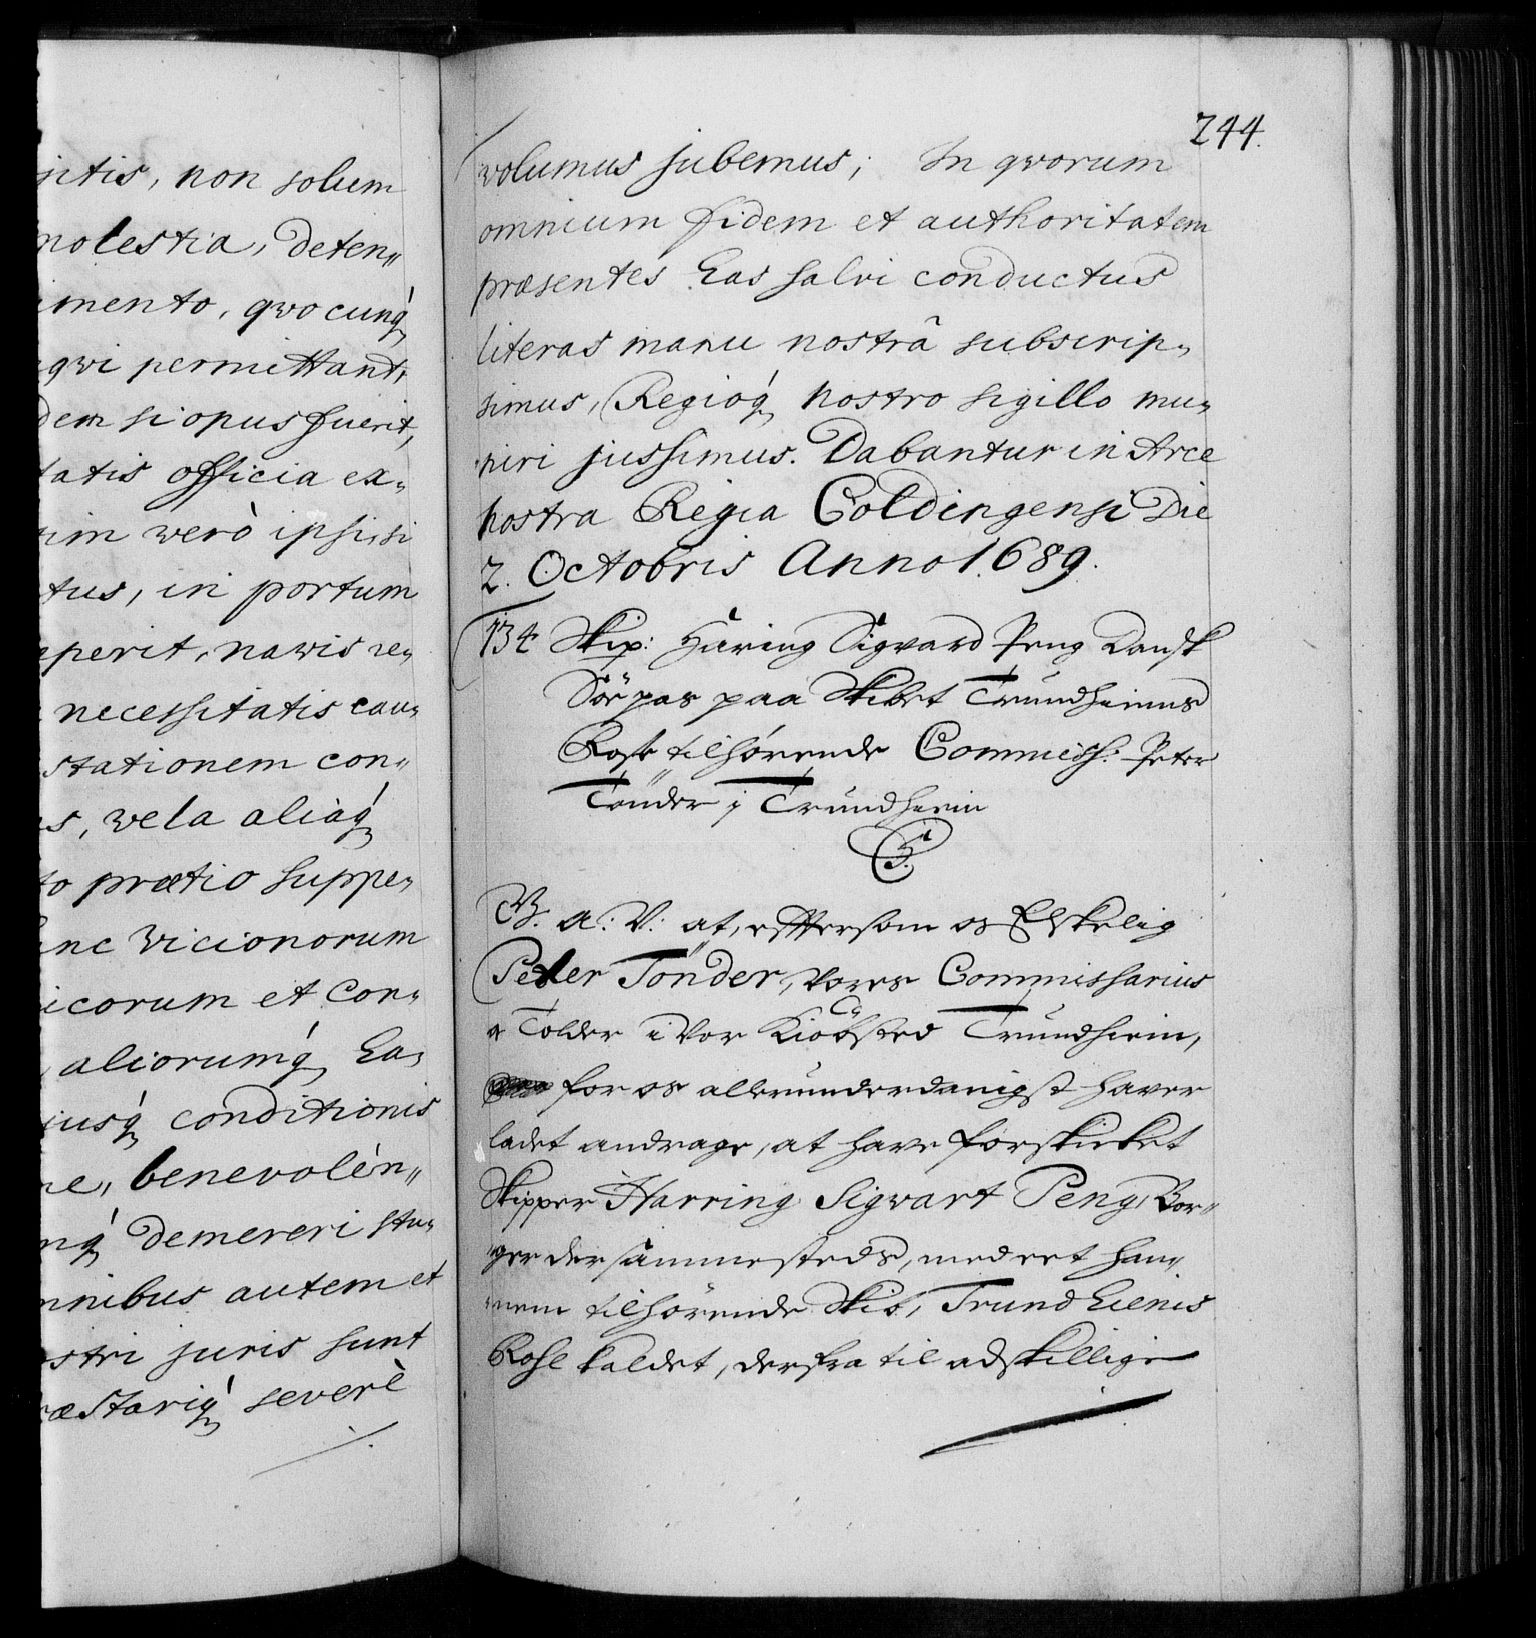 sitis, non solum
molestia, deten„
imento, qvocunq́
qvi permittant,
dem si opus fuerit,
tatis officia ex„
im verò ipsis, si
tus, in portum
perit, navis re„
necessitatis cau„
stationem con„
s, vela aliaq́
to prætio suppe„
nc vicionorum
icorum et con„
aliorumq́ Ea„
iusq́ conditionis
ne, benevolén„
nq́ demereri stu„
nibus autem et
stri juris sunt
ræstariq́ severè
244.
volumus jubemus; In qvorum
omnium fidem et authoritatem
præsentes Eas salvi conductus
literas manu nostrâ subscrip„
simus, Regioq́ nostro sigillo mu„
niri jussimus. Dabantur in Arce
nostra Regia Coldingensi Die
2. Octobris Anno 1689.
134 Skip: Häring Sigvard Peng Dansk
Söe pas paa Skibet Trundheimns
Rose tilhörende Commiss: Peter
Tönder i Trundheim
C5.
G. A: V: at, efftersom os Elskelig
Peter Tönder, vores Commissarius
oc Tolder i Vor Kiöbsted Trundheim,
for os allerunderdanigst haver
ladet andrage, at have forskicket
Skipper Harring Sigvart Peng, Bor„
ger dersammesteds, med eet han„
nem tilhörende Skib, Trundhiems
Rose kaldet, derfra til adskillige